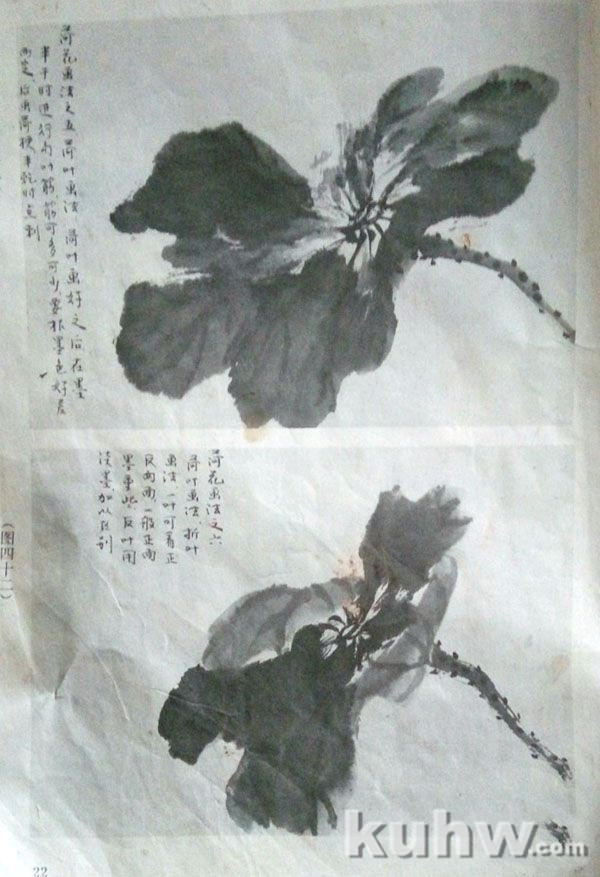 荷花画法之五荷叶画法、荷叶画好之后在墨
半干时进行勾叶筋筋可多可少要根墨色好差
而定后画荷梗半乾时点刺
荷花画法之六
荷叶画法、折叶
画法、一叶可看正
反两面、一般正面
墨重些、反叶用
淡墨加以区别
（图四十二）
22
kuhw.com